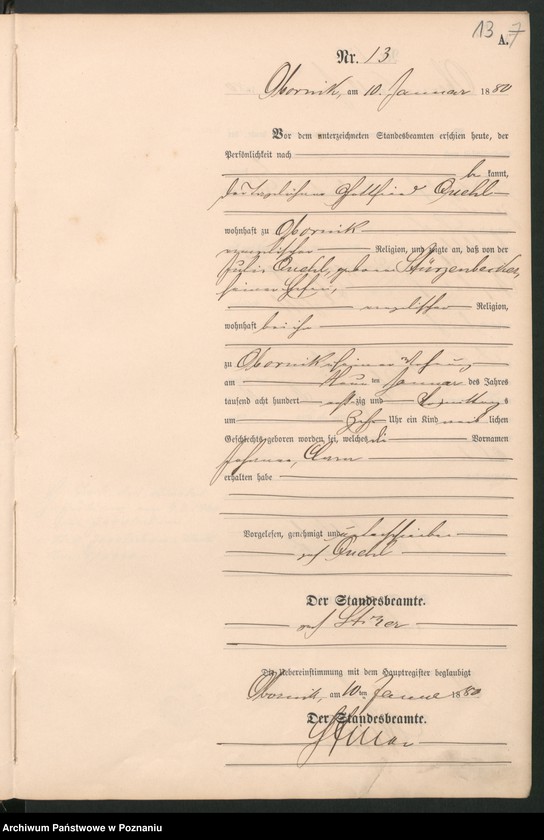 13 A. 7
Nr. 13
Obornik, am 10. Januar 1880
Vor dem unterzeichneten Standesbeamten erschien heute, der
Persönlichkeit nach
be kannt,
der Tagelöhner Quehl
wohnhaft zu Obornik
evangelischer Religion, und zeigte an, daß von der
Quehl, geborne Stürzenbecher,
seiner Ehefrau,
evangelischer Religion,
wohnhaft bei ihm
zu Obornik in seiner Wohnung
am ten Januar des Jahres
tausend acht hundert achtzig und Vormittags
um Uhr ein Kind weib lichen
Geschlechts geboren worden sei, welches die Vornamen
Clara
erhalten habe
Vorgelesen, genehmigt und unterschrieben
Quehl
Der Standesbeamte.
Die Uebereinstimmung mit dem Hauptregister beglaubigt
Obornik, am 10 ten Januar 1880
Der Standesbeamte.
Archiwum Państwowe w Poznaniu